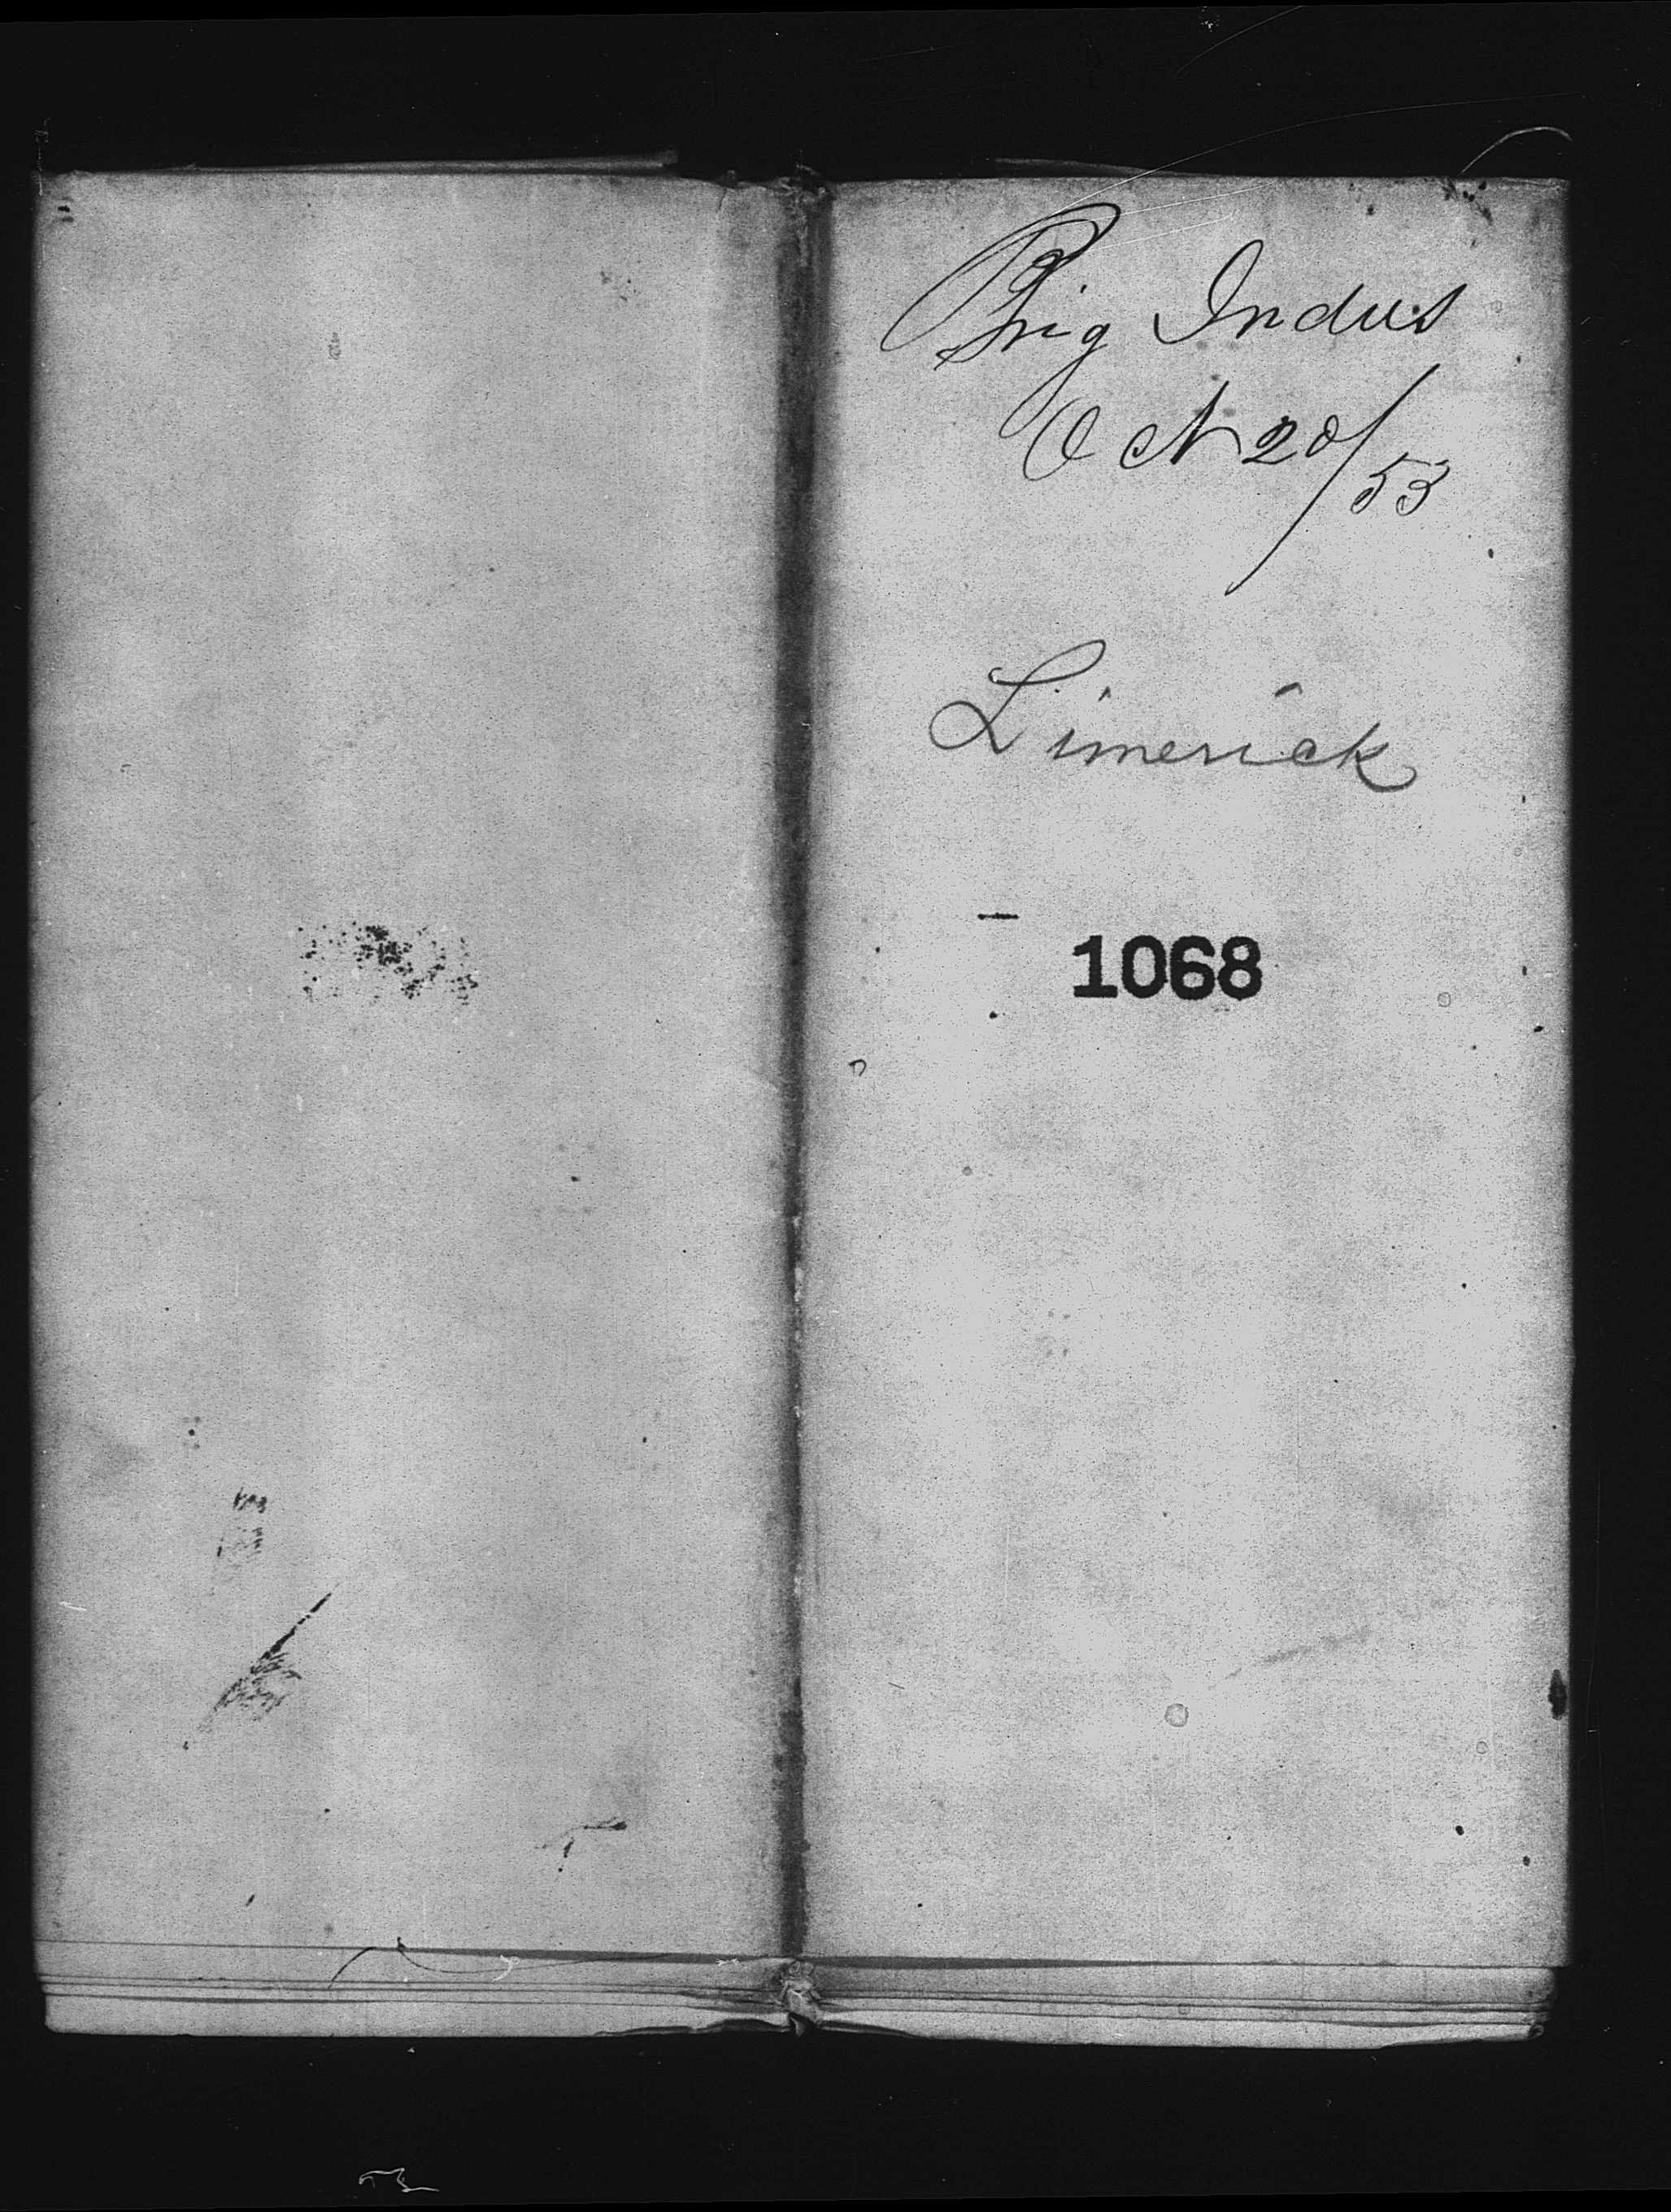 Brig Indus
Oct 20/53
Limerick
1068